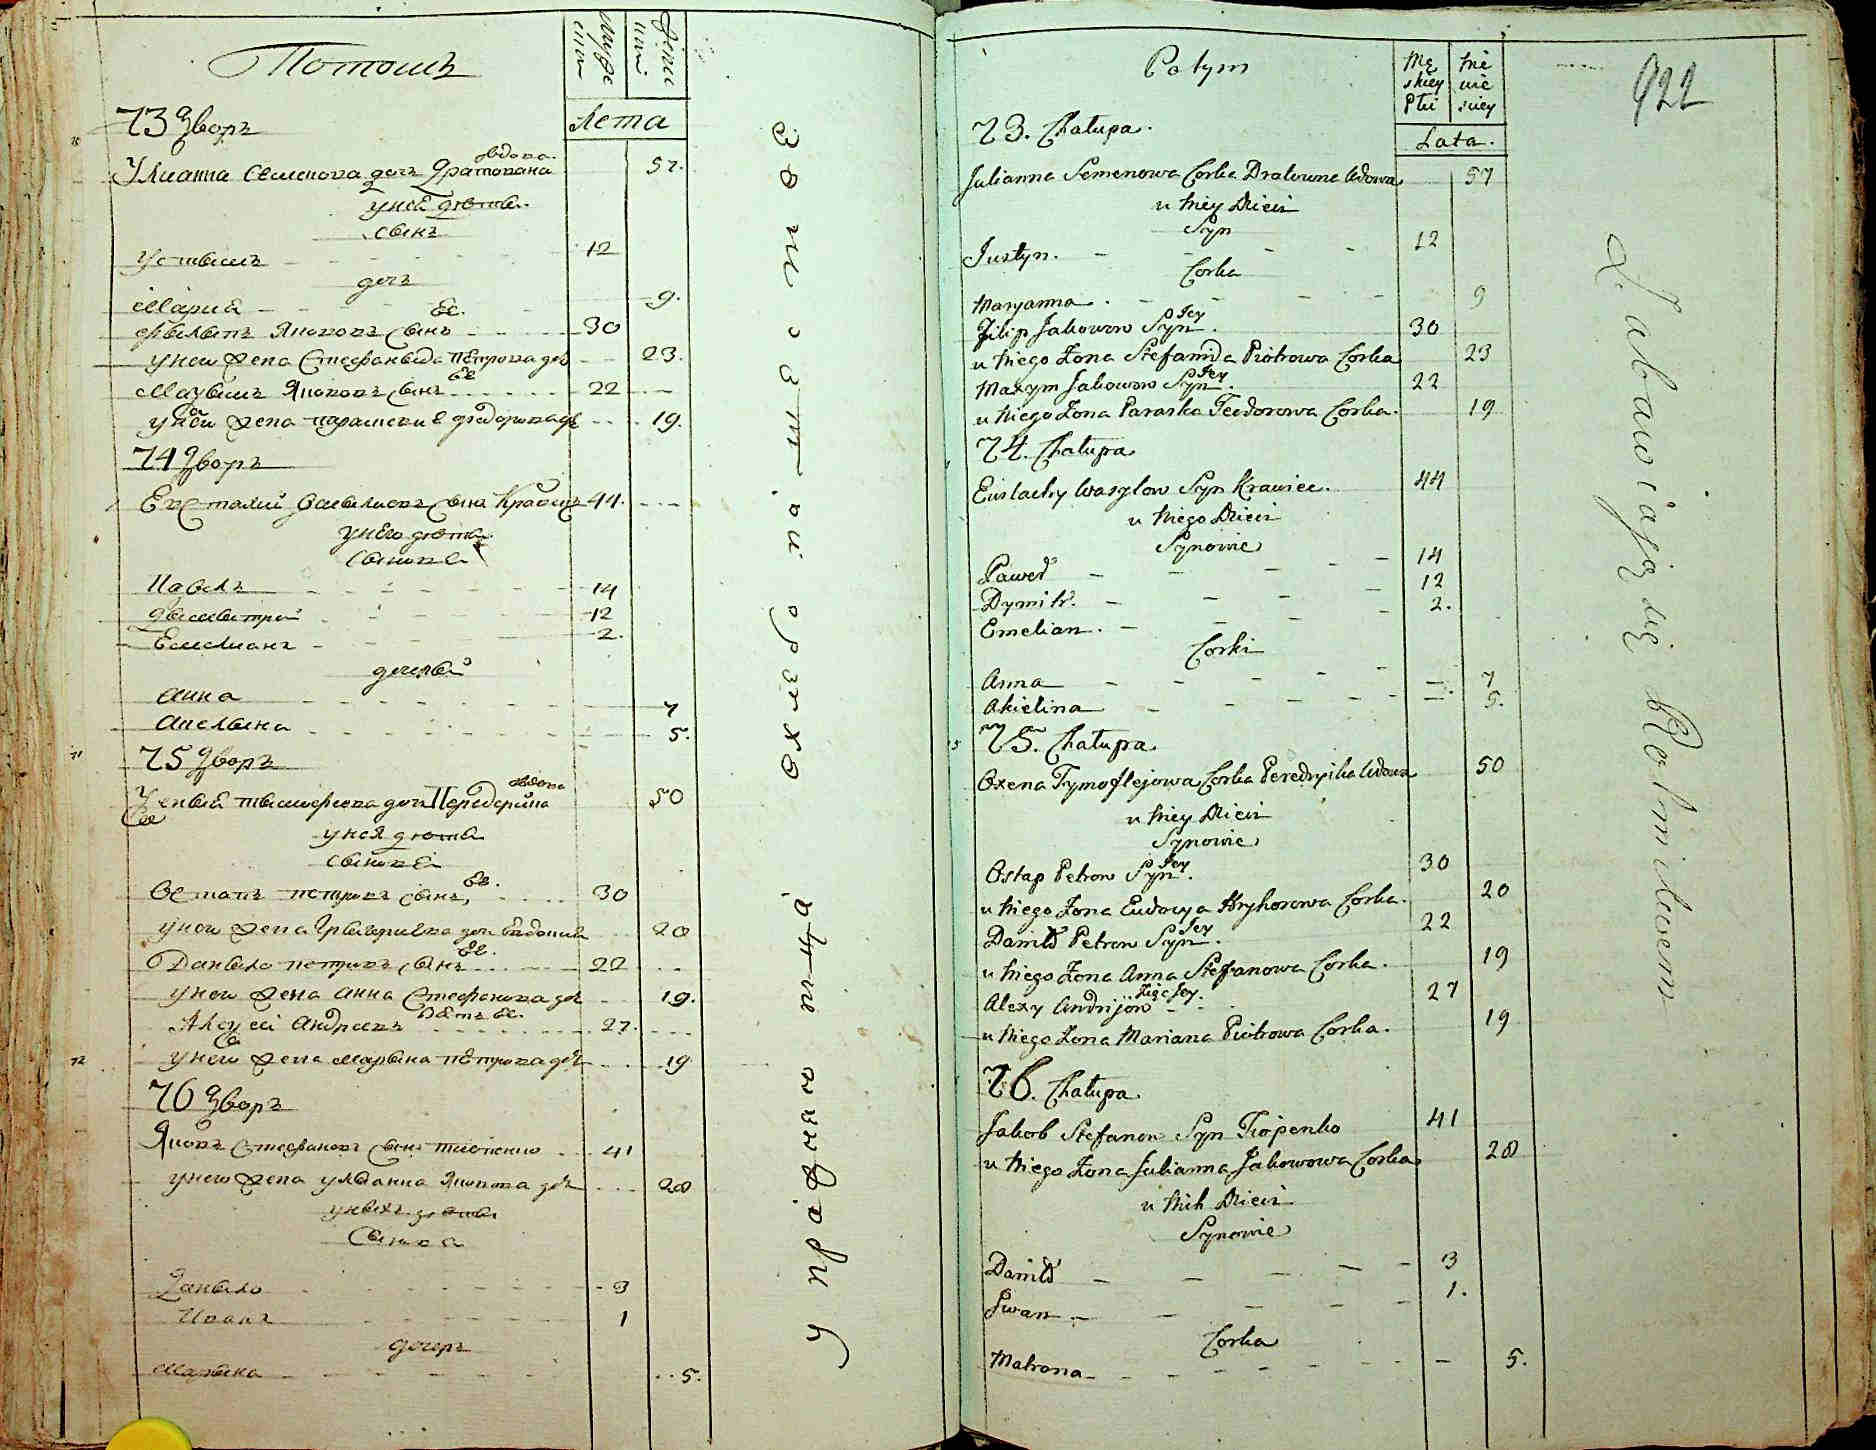 Потомъ
муже
ски
женс
ки
Лета
73 дворъ
Улианна Семенова доч Дратована вдова 57.
у неѣ дети
сынъ
Устымъ 12
доч
Мария 9.
Филипъ Якововъ сынъ Ее. 30
у него жена Стефанида Петрова доч 23.
Мазымъ Якововъ сынъ Ее 22
у него жена Параскиѣ Федорова доч 19.
74 дворъ
Евстафий Васылиовъ сынъ Кравецъ 44.
у него дети
Сынове
Павелъ 14
Дымытрой 12
Емелианъ 2.
дочкы
Анна 7
Акелына 5.
75 дворъ
Ксеныя Тымофеева доч Передерына вдова 50
у нея дети
сынове
Остапъ Петровъ сынъ Ее. 30
у него жена Грыгориева доч Евдокия 20
Данило Петровъ сынъ Ее. 22
у него жена Анна Стефанова доч 19.
Алексей Андреевъ зять Ее. 27.
у него жена Марына Петрова доч 19
76 дворъ
Яковъ Стефановъ сынъ Тиопенко 41
у него жена Улианна Яковова доч 28
у ныхъ дети
Сынова
Даныло 3
Иванъ 1
дочеръ
Марына 5.
упражняются
Potym
Mę
skiey
Płci
Nie
wie
sciey
Lata.
922
73. Chałupa.
Julianna Semenowa Corka Dratowna Wdowa 57
u Niey Dzieci
Syn
Justyn. 12
Corka
Maryanna. 9
Filip Jakowow Syn Jey. 30
u Niego Żona Stefanida Piotrowa Corka 23
Maxym Jakowow Syn Jey. 22
u Niego Żona Paraska Teodorowa Corka. 19
74. Chałupa
Eustachy Wasylow Syn Krawiec. 44
u Niego Dzieci
Synowie
Paweł 14
Dymitr. 12
Emelian. 2.
Corki
Anna 7
Akielina 5.
75. Chałupa
Oxena Tymoflejowa Corka Peredryika Wdowa 50
u Niey Dzieci
Synowie
Ostap Petrow Syn Jey. 30
u Niego Żona Eudocya Hryhorowa Corka. 20
Daniło Petrow Syn Jey. 22
u Niego Żona Anna Stefanowa Corka. 19
Alexy Andrijow Zięć Jey. 27
u Niego Żona Mariana Piotrowa Corka. 19
76. Chałupa
Jakob Stefanow Syn Tiopenko 41
u Niego Żona Julianna Jakowowa Corka 28
u Nich Dzieci
Synowie
Daniło 3
Jwan 1.
Corka
Matrona 5.
Zabawiają się Rolnictwem